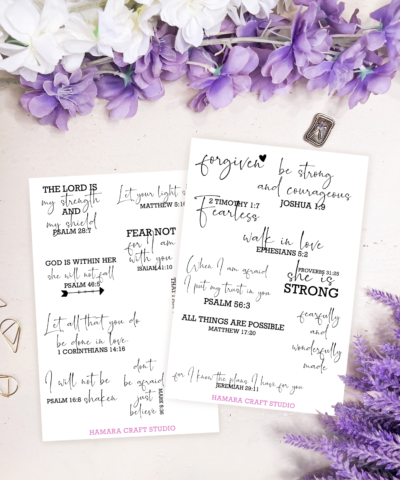 THE LORD IS
my strength
AND
my shield
PSALM 28:7
Let your light s
MATTHEW 5:16
FEAR NOT
for I am
with you
ISAIAH 41:10
GOD IS WITHIN HER
she will not fall
PSALM 46:5
Let all that you do
be done in love
1 CORINTHIANS 14:16
I will not be
shaken
PSALM 16:8
don't
be afraid
just
believe
MARK 5:36
HAMARA CRAFT STUDIO
forgiven
be strong
and courageous
JOSHUA 1:9
2 TIMOTHY 1:7
Fearless
walk in love
EPHESIANS 5:2
When I am afraid
I put my trust in you
PSALM 56:3
PROVERBS 31:25
she is
STRONG
ALL THINGS ARE POSSIBLE
MATTHEW 17:20
fearfully
and
wonderfully
made
for I know the plans I have for you
JEREMIAH 29:11
HAMARA CRAFT STUDIO